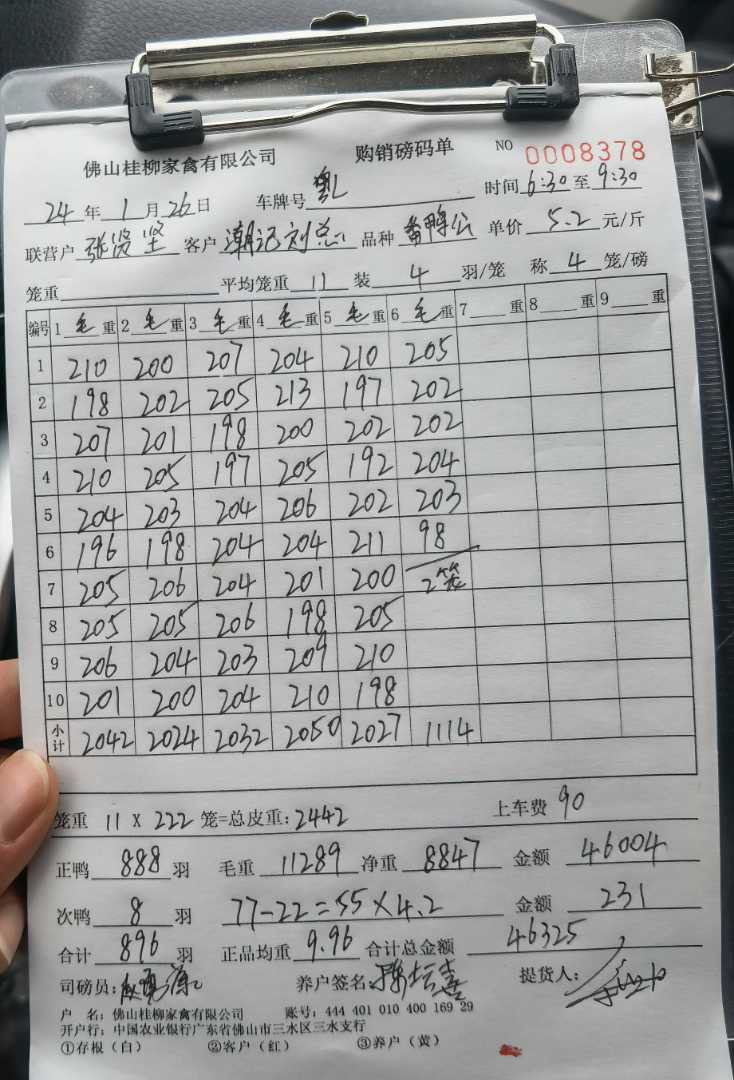 佛山桂柳家禽有限公司 购销磅码单 NO 0008378
24年1月26日 车牌号 粤L 时间6:30至9:30
联营户 张贤坚 客户 潮记刘总 品种 番鸭公 单价 5.2 元/斤
笼重 平均笼重 11 装 4 羽/笼 称 4 笼/磅
编号 1 毛 重 2 毛 重 3 毛 重 4 毛 重 5 毛 重 6 毛 重 7 重 8 重 9 重
1 210 200 207 204 210 205
2 198 202 205 213 197 202
3 207 201 198 200 202 202
4 210 205 197 205 192 204
5 204 203 204 206 202 203
6 196 198 204 204 211 98
7 205 206 204 201 200 2笼
8 205 205 206 198 205
9 206 204 203 209 210
10 201 200 204 210 198
小计 2042 2024 2032 2050 2027 1114
笼重 11 X 222 笼=总皮重:2442 上车费 90
正鸭 888 羽 毛重 11289 净重 8847 金额 46004
次鸭 8 羽 77-22=55×4.2 金额 231
合计 896 羽 正品均重 9.96 合计总金额 46325
司磅员: 养户签名: 提货人:
户 名:佛山桂柳家禽有限公司 账号:444 401 010 400 169 29
开户行:中国农业银行广东省佛山市三水区三水支行
①存根(白) ②客户(红) ③养户(黄)